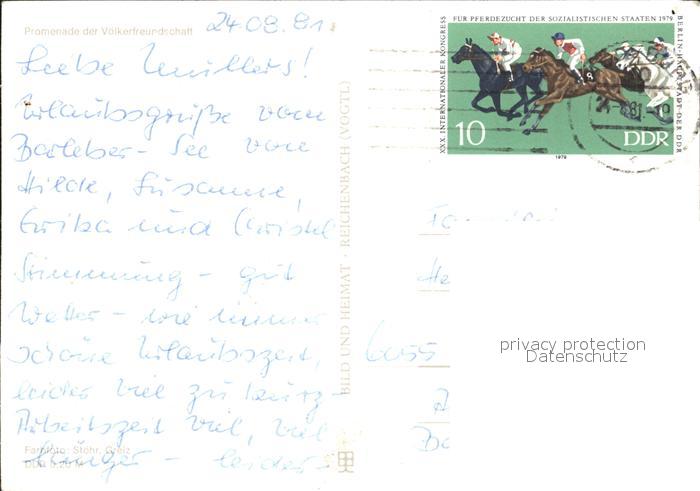 Promenade der Völkerfreundschaft
24.08.81
Liebe Müllers!
Urlaubsgrüße vom
Barleber-See von
Hilde, Susanne,
Erika und Christel
Stimmung - gut
Wetter - wie immer
schöne Urlaubszeit,
leider viel zu kurz -
Arbeitszeit viel, viel
länger - leider -
Farbfoto: Stöhr, Greiz
DDR 0,20 M
BILD UND HEIMAT · REICHENBACH (VOGTL)
XXX. INTERNATIONALER KONGRESS
FÜR PFERDEZUCHT DER SOZIALISTISCHEN STAATEN 1979
BERLIN-HAUPTSTADT DER DDR
8
10
DDR
1979
Fa
He
6055
privacy protection
Datenschutz